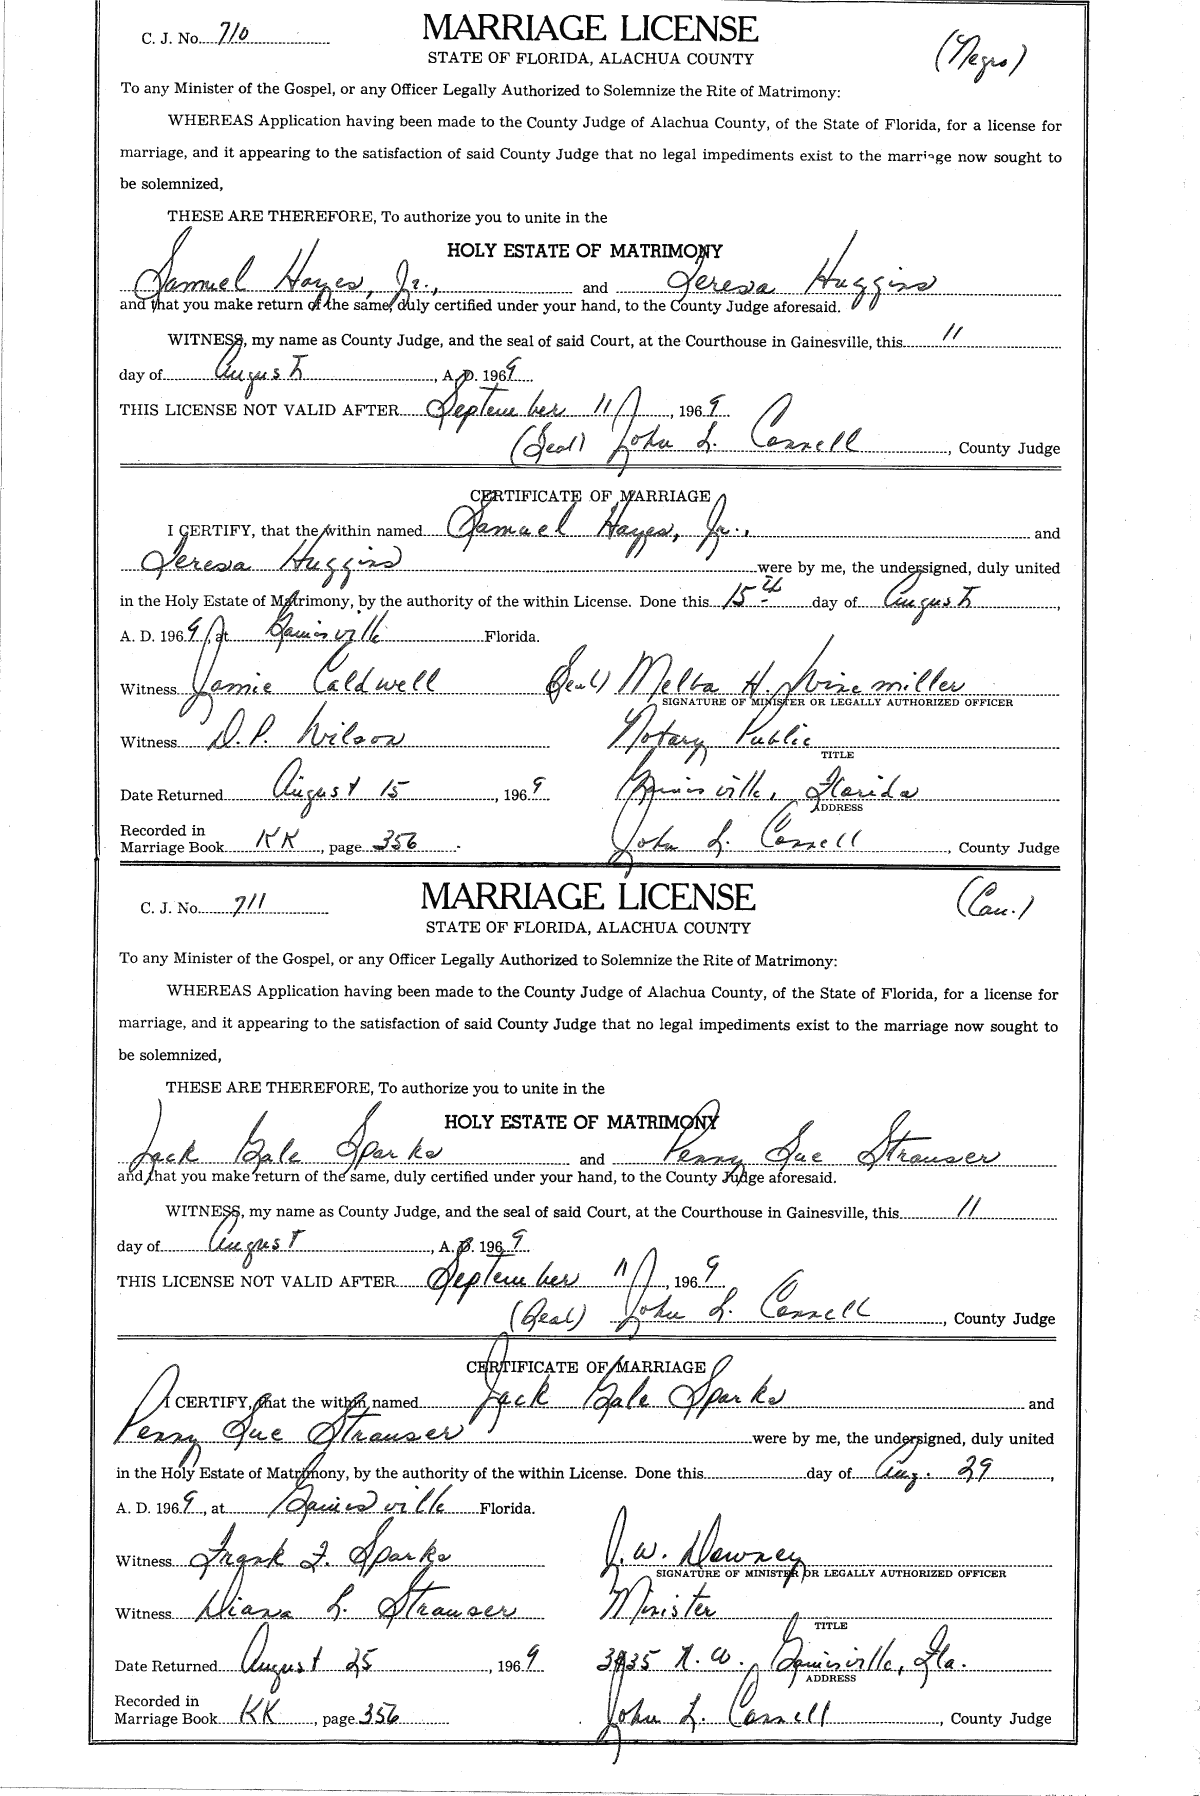 C. J. No. 710
MARRIAGE LICENSE
STATE OF FLORIDA, ALACHUA COUNTY
(Negro)
To any Minister of the Gospel, or any Officer Legally Authorized to Solemnize the Rite of Matrimony:
WHEREAS Application having been made to the County Judge of Alachua County, of the State of Florida, for a license for
marriage, and it appearing to the satisfaction of said County Judge that no legal impediments exist to the marriage now sought to
be solemnized,
THESE ARE THEREFORE, To authorize you to unite in the
HOLY ESTATE OF MATRIMONY
Samuel Hayes, Jr., and Teresa Huggins
and that you make return of the same, duly certified under your hand, to the County Judge aforesaid.
WITNESS, my name as County Judge, and the seal of said Court, at the Courthouse in Gainesville, this 11
day of August, A. D. 1969
THIS LICENSE NOT VALID AFTER September 11, 1969
(Seal) John L. Connell, County Judge
CERTIFICATE OF MARRIAGE
I CERTIFY, that the within named Samuel Hayes, Jr., and
Teresa Huggins were by me, the undersigned, duly united
in the Holy Estate of Matrimony, by the authority of the within License. Done this 15th day of August,
A. D. 1969, at Gainesville Florida.
Witness Jamie Caldwell (Seal) Melba H. Winemiller
SIGNATURE OF MINISTER OR LEGALLY AUTHORIZED OFFICER
Witness D. P. Wilson Notary Public
TITLE
Date Returned August 15, 1969 Gainesville, Florida
ADDRESS
Recorded in
Marriage Book KK, page 356. John L. Connell, County Judge
C. J. No. 711
MARRIAGE LICENSE
STATE OF FLORIDA, ALACHUA COUNTY
(Cau.)
To any Minister of the Gospel, or any Officer Legally Authorized to Solemnize the Rite of Matrimony:
WHEREAS Application having been made to the County Judge of Alachua County, of the State of Florida, for a license for
marriage, and it appearing to the satisfaction of said County Judge that no legal impediments exist to the marriage now sought to
be solemnized,
THESE ARE THEREFORE, To authorize you to unite in the
HOLY ESTATE OF MATRIMONY
Jack Gale Sparks and Penny Sue Strauser
and that you make return of the same, duly certified under your hand, to the County Judge aforesaid.
WITNESS, my name as County Judge, and the seal of said Court, at the Courthouse in Gainesville, this 11
day of August, A. D. 1969
THIS LICENSE NOT VALID AFTER September 11, 1969
(Seal) John L. Connell, County Judge
CERTIFICATE OF MARRIAGE
I CERTIFY, that the within named Jack Gale Sparks and
Penny Sue Strauser were by me, the undersigned, duly united
in the Holy Estate of Matrimony, by the authority of the within License. Done this day of Aug. 29,
A. D. 1969, at Gainesville Florida.
Witness Frank F. Sparks J. W. Downey
SIGNATURE OF MINISTER OR LEGALLY AUTHORIZED OFFICER
Witness Diana L. Strauser Minister
TITLE
Date Returned August 25, 1969 N. W. Gainesville, Fla.
ADDRESS
Recorded in
Marriage Book KK, page 356 John L. Connell, County Judge